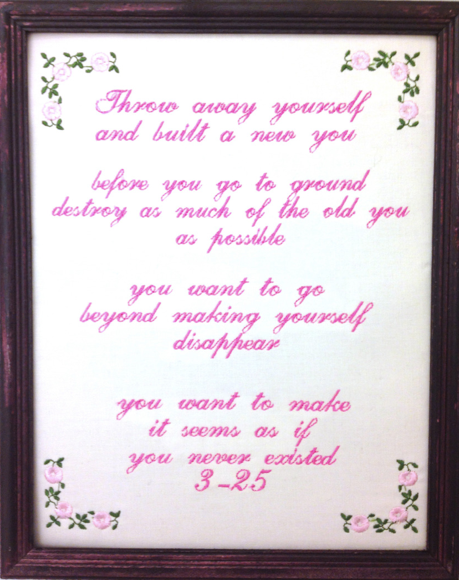 Throw away yourself
and built a new you
before you go to ground
destroy as much of the old you
as possible
you want to go
beyond making yourself
disappear
you want to make
it seems as if
you never existed
3-25